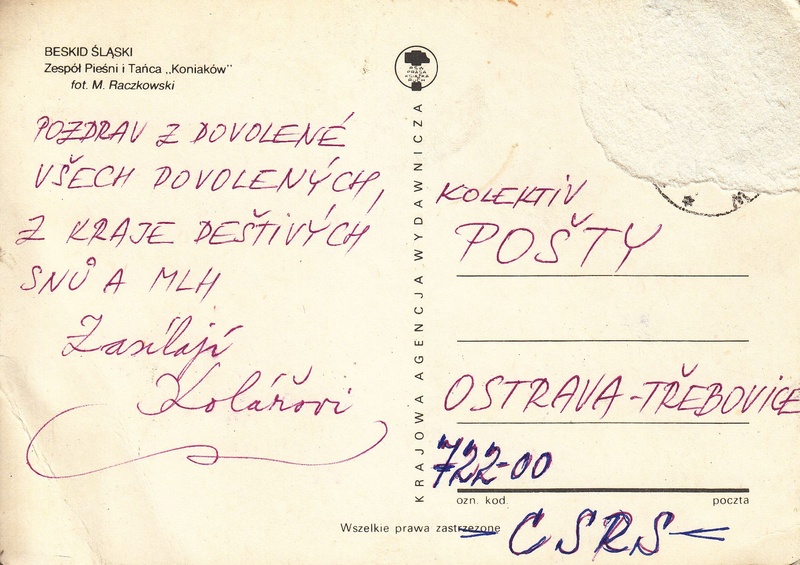 BESKID ŚLĄSKI
Zespół Pieśni i Tańca „Koniaków"
fot. M. Raczkowski
POZDRAV Z DOVOLENÉ
VŠECH DOVOLENÝCH,
Z KRAJE DEŠTIVÝCH
SNŮ A MLH
Zasílají
Kolářovi
RSW
PRASA
KSIĄŻKA
RUCH
KRAJOWA AGENCJA WYDAWNICZA
KOLEKTIV
POŠTY
OSTRAVA-TŘEBOVICE
722-00
ozn. kod.
poczta
Wszelkie prawa zastrzeżone
CSRS